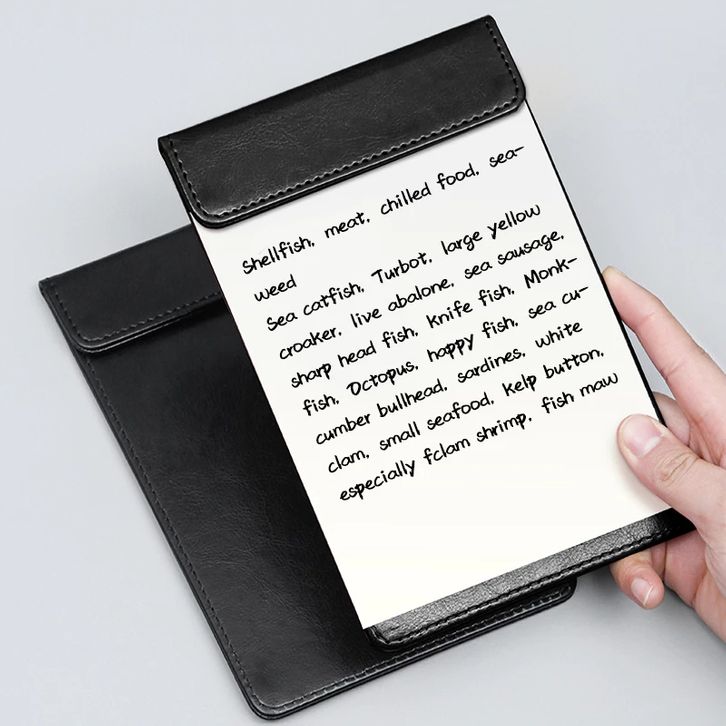 Shellfish, meat, chilled food, sea-
weed
Sea catfish, Turbot, large yellow
croaker, live abalone, sea sausage,
sharp head fish, knife fish, Monk-
fish, Octopus, happy fish, sea cu-
cumber bullhead, sardines, white
clam, small seafood, kelp button,
especially fclam shrimp, fish maw